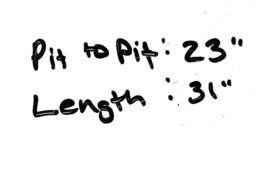 Pit to Pit: 23"
Length : 31"